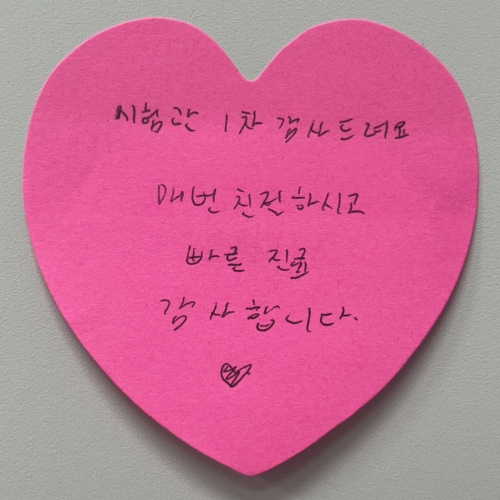 시험관 1차 감사드려요
매번 친절하시고
빠른 진료
감사합니다.